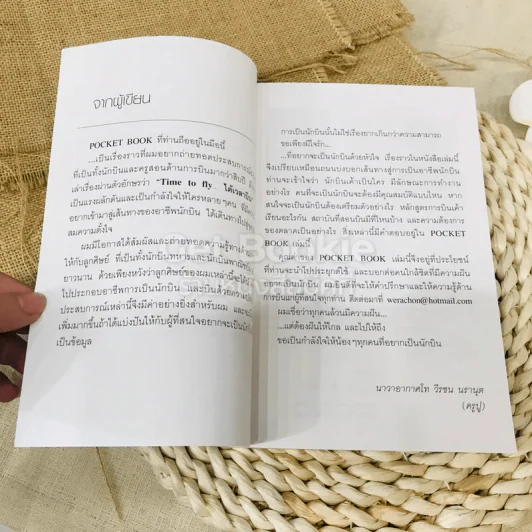 จากผู้เขียน
POCKET BOOK ที่ท่านถืออยู่ในมือนี้
...เป็นเรื่องราวที่ผมอยากถ่ายทอดประสบการณ์
ที่เป็นทั้งนักบินและครูสอนด้านการบินมากว่าสิบปี
เล่าเรื่องผ่านตัวอักษรว่า "Time to fly ได้เวลาบิน"
เป็นแรงผลักดันและเป็นกำลังใจให้ใครหลายๆคน ที่มี
อยากเข้ามาสู่เส้นทางของอาชีพนักบิน ได้เดินทางไปสู่
สมความตั้งใจ
ผมมีโอกาสได้สัมผัสและถ่ายทอดความรู้ทาง
ให้กับลูกศิษย์ ที่เป็นทั้งนักบินทหารและนักบินพาณิชย์
ยาวนาน ด้วยเพียงหวังว่าลูกศิษย์ของผมเหล่านี้จะได้
ไปประกอบอาชีพการเป็นนักบิน และเป็นนักบินด้วย
ประสบการณ์เหล่านี้จึงมีค่าอย่างยิ่งสำหรับผม และจะ
เพิ่มมากขึ้นถ้าได้แบ่งปันให้กับผู้ที่สนใจอยากจะเป็นนักบิน
เป็นข้อมูล
การเป็นนักบินนั้นไม่ใช่เรื่องยากเกินกว่าความสามารถ
ขอเพียงมีใจรัก...
...ที่อยากจะเป็นนักบินด้วยหัวใจ เรื่องราวในหนังสือเล่มนี้
จึงเปรียบเหมือนถนนบ่งบอกเส้นทางสู่การเป็นอาชีพนักบิน
ท่านจะเข้าใจว่า นักบินเค้าเป็นใคร มีลักษณะการทำงาน
อย่างไร คนที่จะเป็นนักบินจะต้องมีคุณสมบัติแบบไหน หาก
สนใจจะเป็นนักบินต้องเตรียมตัวอย่างไร หลักสูตรการบินเค้า
เรียนอะไรกัน สถาบันที่สอนบินมีที่ไหนบ้าง และความต้องการ
ของตลาดเป็นอย่างไร สิ่งเหล่านี้มีคำตอบอยู่ใน POCKET
BOOK เล่มนี้
คุณค่าของ POCKET BOOK เล่มนี้จึงอยู่ที่ประโยชน์
ที่ท่านจะนำไปประยุกต์ใช้ และบอกต่อคนใกล้ชิดที่มีความ
อยากเป็นนักบิน ผมยินดีที่จะให้คำปรึกษาและให้ความรู้ด้าน
การบินแก่ผู้ที่สนใจทุกท่าน ติดต่อมาที่ werachon@hotmail.com
ผมเชื่อว่าทุกคนล้วนมีความฝัน...
...แต่ต้องฝันให้ไกล และไปให้ถึง
ขอเป็นกำลังใจให้น้องๆทุกคนที่อยากเป็นนักบิน
นาวาอากาศโท วีรชน นรานุต
(ครูปู)